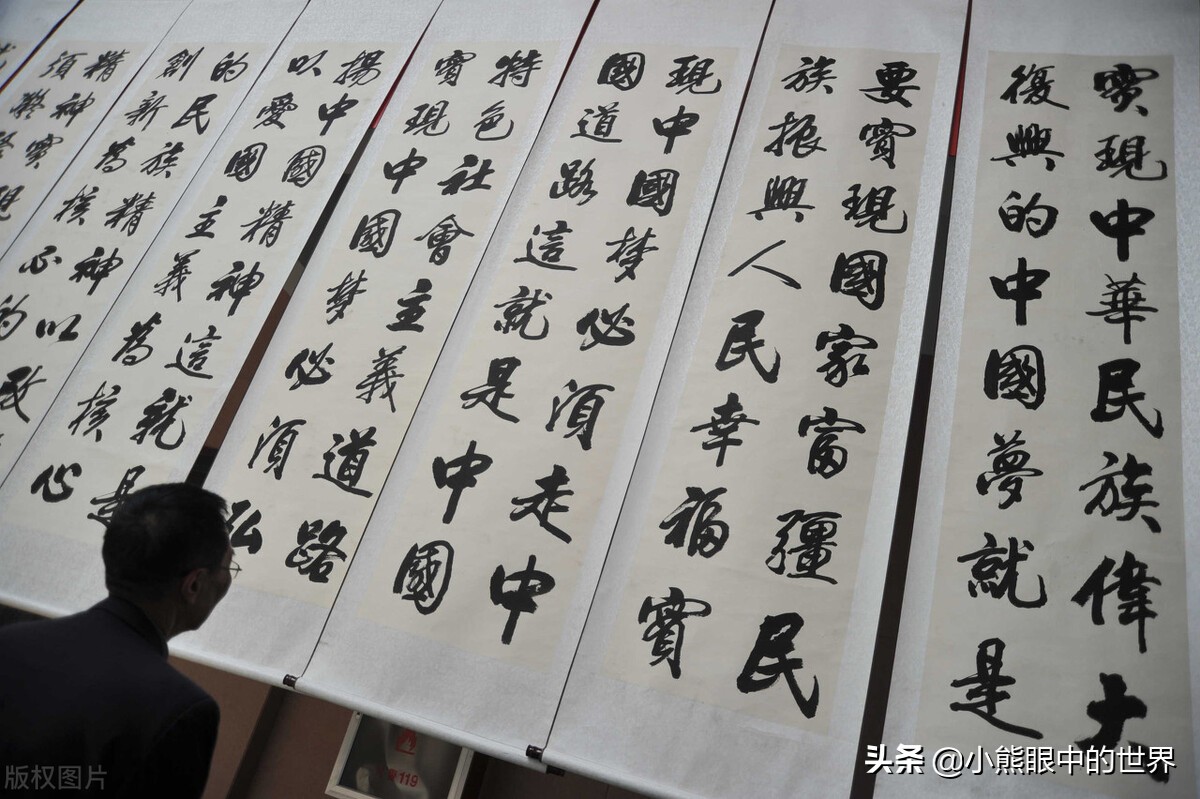 實現中華民族偉大
復興的中國夢就是
要實現國家富彊民
族振興人民幸福實
現中國梦必須走中
國道路這就是中國
特色社會主義道路
實現中國梦必須弘
揚中國精神這就是
以愛國主義為核心
的民族精神以改
創新為核心的
精神實現
須凝聚
119
版权图片
头条 @小熊眼中的世界